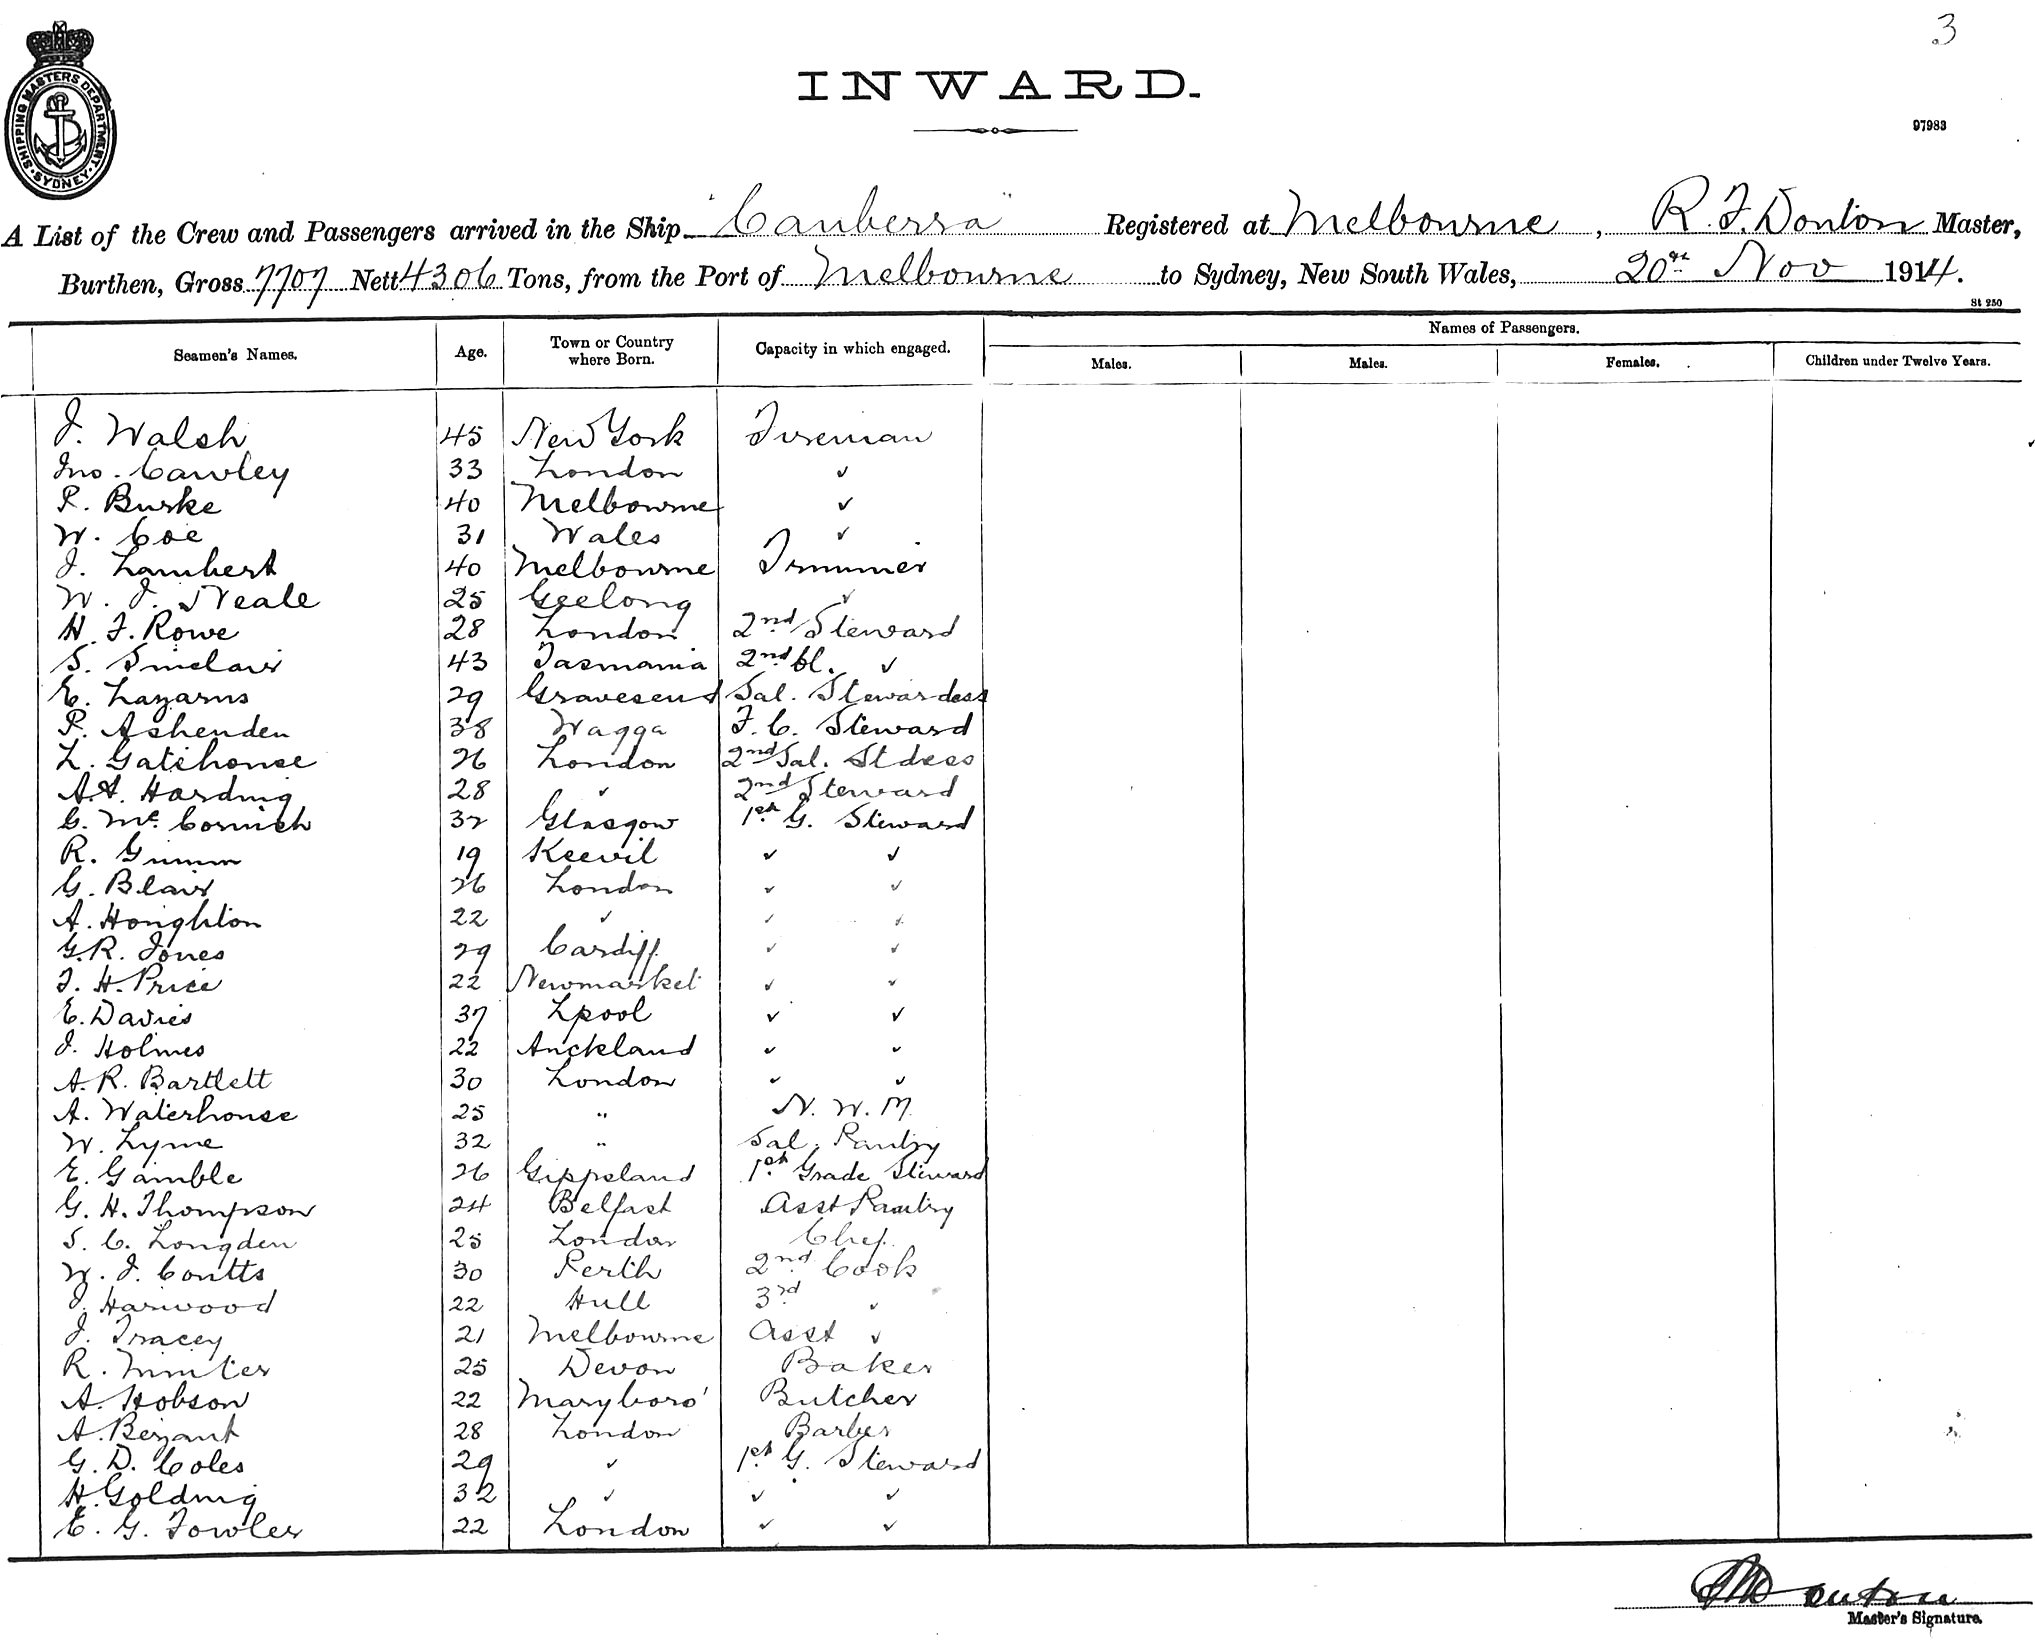 3
SHIPPING MASTERS DEPARTMENT
SYDNEY
INWARD.
97983
A List of the Crew and Passengers arrived in the Ship "Canberra" Registered at Melbourne, R. F. Donton Master,
Burthen, Gross 7707 Nett 4306 Tons, from the Port of Melbourne to Sydney, New South Wales, 20th Nov 1914.
St 250
Seamen's Names. Age. Town or Country where Born. Capacity in which engaged. Names of Passengers.
Males. Males. Females. Children under Twelve Years.
J. Walsh 45 New York Fireman
Jno. Cawley 33 London ✓
P. Burke 40 Melbourne ✓
W. Coe 31 Wales ✓
J. Lambert 40 Melbourne Trimmer
W. J. Neale 25 Geelong ✓
H. F. Rowe 28 London 2nd Steward
S. Sinclair 43 Tasmania 2nd Cl. ✓
E. Lazarus 29 Gravesend Sal. Stewardess
P. Ashenden 38 Wagga F. C. Steward
L. Gatehouse 26 London 2nd Sal. Stdess
A.A. Harding 28 ✓ 2nd Steward
G. Mc Cornish 32 Glasgow 1st G. Steward
R. Gimm 19 Keevil ✓ ✓
G. Blair 26 London ✓ ✓
A. Houghton 22 ✓ ✓ ✓
G.R. Jones 29 Cardiff ✓ ✓
F. H. Price 22 Newmarket ✓ ✓
E. Davies 37 Lpool ✓ ✓
J. Holmes 22 Auckland ✓ ✓
A. R. Bartlett 30 London ✓ ✓
A. Waterhouse 25 " N. W. M.
W. Lyme 32 " Sal. Pantry
E. Gamble 26 Gippsland 1st Grade Steward
G. H. Thompson 24 Belfast Asst Pantry
S. C. Longden 25 London Chef.
W. J. Coutts 30 Perth 2nd Cook
J. Harwood 22 Hull 3rd ✓
J. Tracey 21 Melbourne Asst ✓
R. Minter 25 Devon Baker
A. Hobson 22 Maryboro' Butcher
A. Bezant 28 London Barber
G. D. Coles 29 ✓ 1st G. Steward
H. Golding 32 ✓ ✓ ✓
E. G. Fowler 22 London ✓ ✓
Donton
Master's Signature.